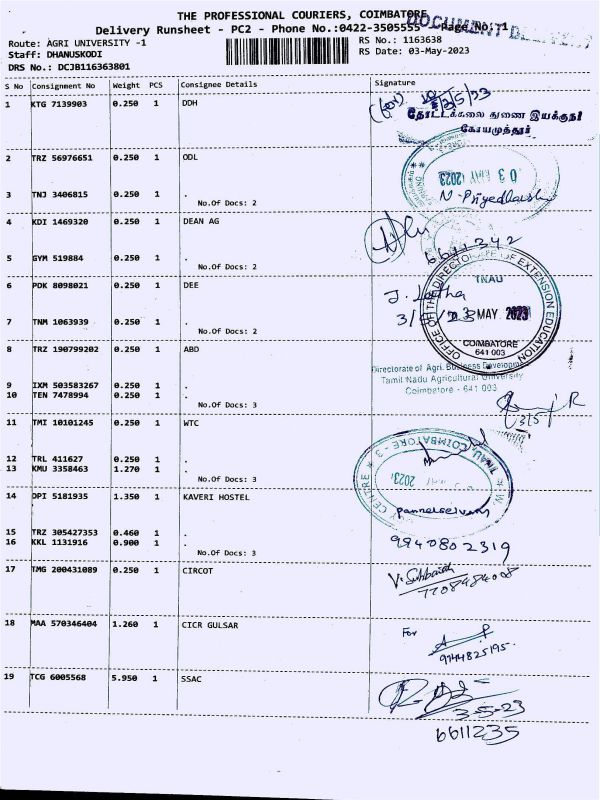 THE PROFESSIONAL COURIERS, COIMBATORE
DOCUMENT DELIVERY
Delivery Runsheet - PC2 - Phone No.:0422-3505555 Page No: 1
Route: AGRI UNIVERSITY -1
RS No.: 1163638
Staff: DHANUSKODI
RS Date: 03-May-2023
DRS No.: DCJB116363801
S No Consignment No Weight PCS Consignee Details Signature
1 KTG 7139903 0.250 1 DDH
தோட்டக்கலை துணை இயக்குநர்
கோயமுத்தூர்
2 TRZ 56976651 0.250 1 ODL
03 MAY 2023
3 TNJ 3406815 0.250 1 .
No.Of Docs: 2
4 KDI 1469320 0.250 1 DEAN AG
6611342
5 GYM 519884 0.250 1 .
No.Of Docs: 2
6 PDK 8098021 0.250 1 DEE
OFFICE OF THE DIRECTORATE OF EXTENSION EDUCATION
TNAU
J. Latha
3 MAY 2023
COIMBATORE
641 003
7 TNM 1063939 0.250 1 .
No.Of Docs: 2
8 TRZ 190799202 0.250 1 ABD
Directorate of Agri. Business Development
Tamil Nadu Agricultural University
Coimbatore - 641 003
9 IXM 503583267 0.250 1 .
10 TEN 7478994 0.250 1 .
No.Of Docs: 3
3/5
11 TMI 10101245 0.250 1 WTC
TNAU, COIMBATORE - 3
2023
12 TRL 411627 0.250 1 .
13 KMU 3358463 1.270 1 .
No.Of Docs: 3
14 DPI 5181935 1.350 1 KAVERI HOSTEL
Pannerselvam
15 TRZ 305427353 0.460 1 .
16 KKL 1131916 0.900 1 .
No.Of Docs: 3
9940802319
17 TMG 200431089 0.250 1 CIRCOT
V. Subbaiah
7708484008
18 MAA 570346404 1.260 1 CICR GULSAR
For
9144825195
19 TCG 6005568 5.950 1 SSAC
3-5-23
6611235